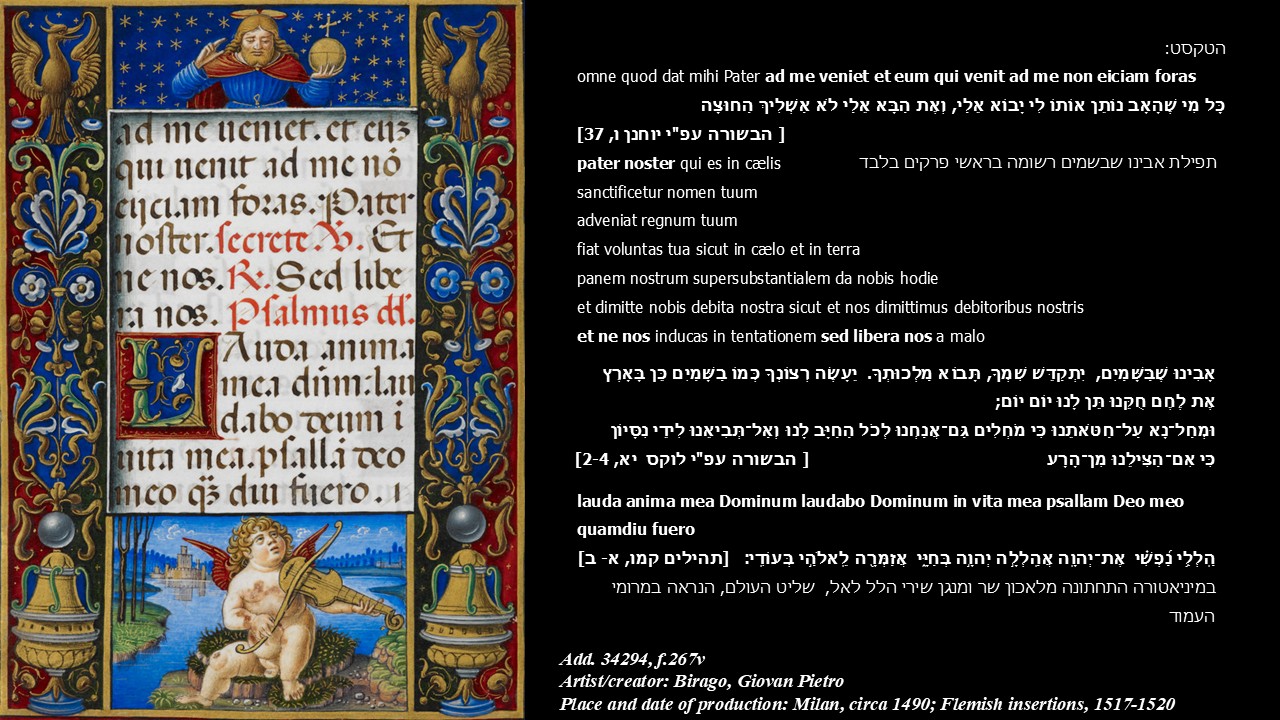 ad me ueniet. et eu3
qui uenit ad me nõ
eijciam foras. Pater
noster. secrete. V. Et
ne nos. R: Sed libe
ra nos. Psalmus dd.
LAuda anima
mea dñm: lau
dabo deum i
uita mea. psallã deo
meo q3 diu fuero. i
הטקסט:
omne quod dat mihi Pater ad me veniet et eum qui venit ad me non eiciam foras
כָּל מִי שֶׁהָאָב נוֹתֵן אוֹתוֹ לִי יָבוֹא אֵלַי, וְאֶת הַבָּא אֵלַי לֹא אַשְׁלִיךְ הַחוּצָה
[הבשורה עפ"י יוחנן ו, 37 ]
pater noster qui es in cælis תפילת אבינו שבשמים רשומה בראשי פרקים בלבד
sanctificetur nomen tuum
adveniat regnum tuum
fiat voluntas tua sicut in cælo et in terra
panem nostrum supersubstantialem da nobis hodie
et dimitte nobis debita nostra sicut et nos dimittimus debitoribus nostris
et ne nos inducas in tentationem sed libera nos a malo
אָבִינוּ שֶׁבַּשָּׁמַיִם, יִתְקַדֵּשׁ שִׁמְךָ, תָּבוֹא מַלְכוּתְךָ. יֵעָשֶׂה רְצוֹנְךָ כְּמוֹ בַשָּׁמַיִם כֵּן בָּאָרֶץ
אֶת לֶחֶם חֻקֵּנוּ תֵּן לָנוּ יוֹם יוֹם;
וּמְחַל־נָא עַל־חַטֹּאתֵנוּ כִּי מֹחֲלִים גַּם־אֲנַחְנוּ לְכֹל הַחַיָּב לָנוּ וְאַל־תְּבִיאֵנוּ לִידֵי נִסָּיוֹן
כִּי אִם־הַצִּילֵנוּ מִן־הָרָע [ הבשורה עפ"י לוקס יא, 2-4]
lauda anima mea Dominum laudabo Dominum in vita mea psallam Deo meo
quamdiu fuero
הַֽלְלִ֥י נַ֝פְשִׁ֗י אֶת־יְהוָֽה אֲהַלְלָ֣ה יְהוָ֣ה בְּחַיָּ֑י אֲזַמְּרָ֖ה לֵֽאלֹהַ֣י בְּעוֹדִֽי׃ [תהילים קמו, א- ב]
במיניאטורה התחתונה מלאכון שר ומנגן שירי הלל לאל, שליט העולם, הנראה במרומי
העמוד
Add. 34294, f.267v
Artist/creator: Birago, Giovan Pietro
Place and date of production: Milan, circa 1490; Flemish insertions, 1517-1520